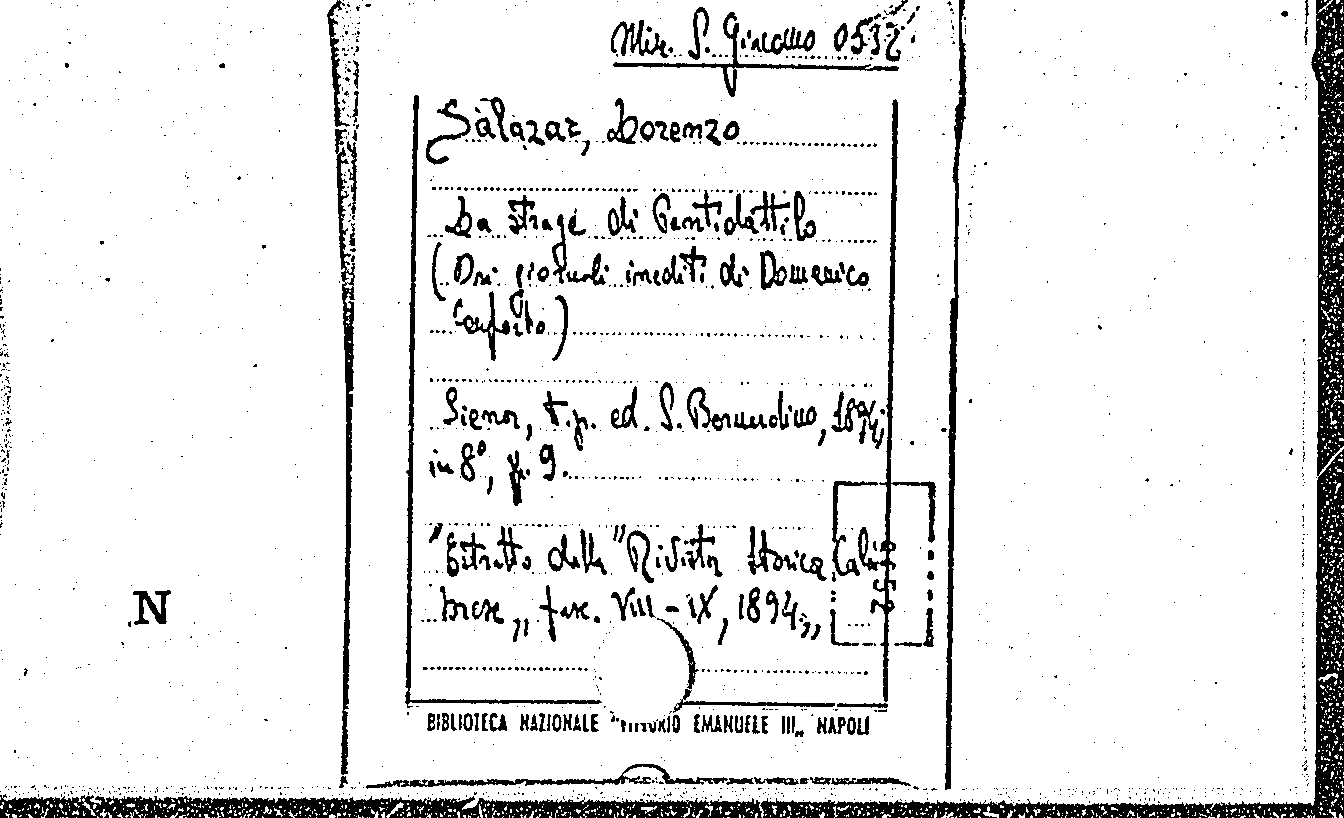 Misc. S. Giacomo 0532
Salazar, Lorenzo
La strage di Pentidattilo
(Dai giornali inediti di Domenico
Confuorto)
Siena, tip. ed. S. Bernardino, 1894;
in 8°, p. 9.
"Estratto dalla "Rivista Storica Cala-
brese„, fasc. VIII - IX, 1894„
N
BIBLIOTECA NAZIONALE "VITTORIO EMANUELE III„ NAPOLI